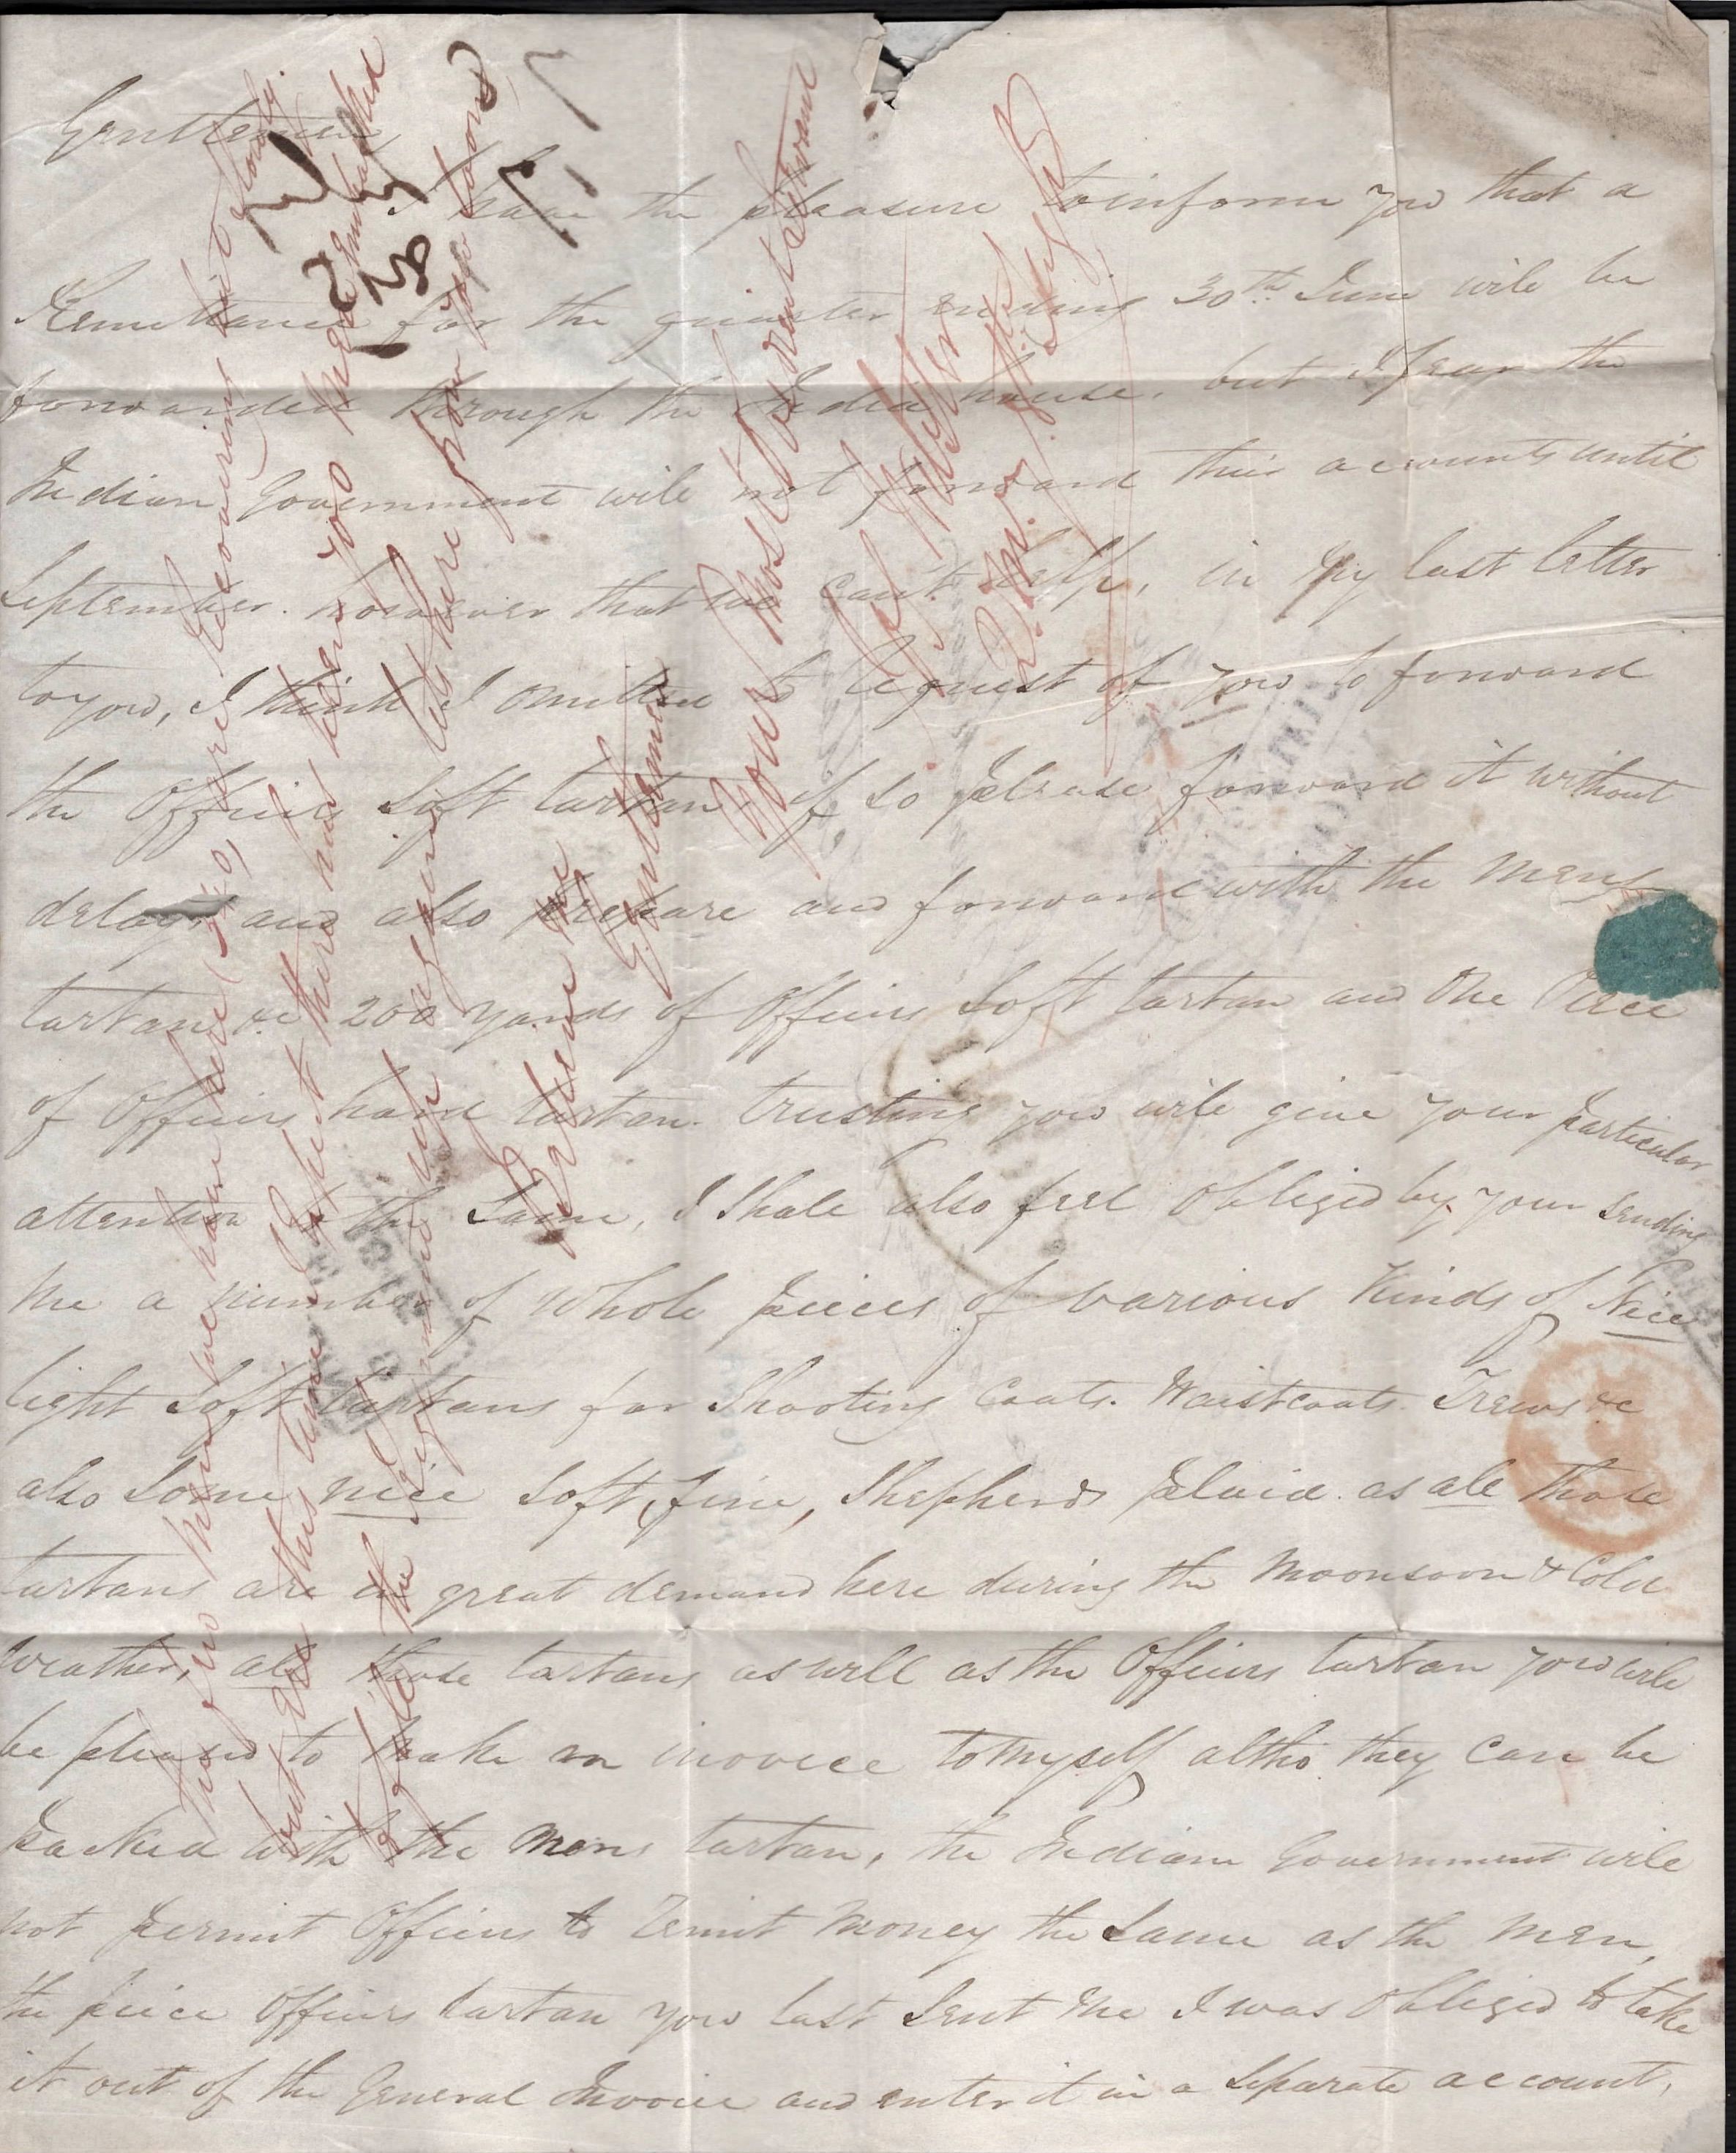 Gentlemen
I have the pleasure to inform you that a
Remittance for the quarter ending 30th June will be
forwarded through the India house, but I fear the
Indian Government will not forward their accounts until
September. however that we can't help, in my last letter
to you, I think I omitted to request of you to forward
the Officers Soft tartan, if so please forward it without
delay, and also prepare and forward with the mens
tartan &c 200 yards of Officers Soft tartan and One Piece
of Officers hard tartan. trusting you will give your particular
attention to the Same, I Shall also feel obliged by your Sending
me a number of whole pieces of various Kinds of Nice
light Soft tartans for Shooting Coats. Waistcoats. Trews &c
also Some nice Soft, fine, Shepherds plaid. as all those
tartans are in great demand here during the Moonsoon & Cold
weather, all those tartans as well as the Officers tartan you will
be pleased to make an invoice to myself altho' they can be
packed with the mens tartan, the Indian Government will
not permit Officers to remit money the Same as the men,
the piece Officers tartan you last Sent me I was obliged to take
it out of the General Invoice and enter it in a Separate account,
The few men we have here are recovering but slowly.
but ere this time I expect there has been 700 here embarked
to fill the Regiment up again, where now
Believe me
Gentlemen
Your Most Obedient Servant